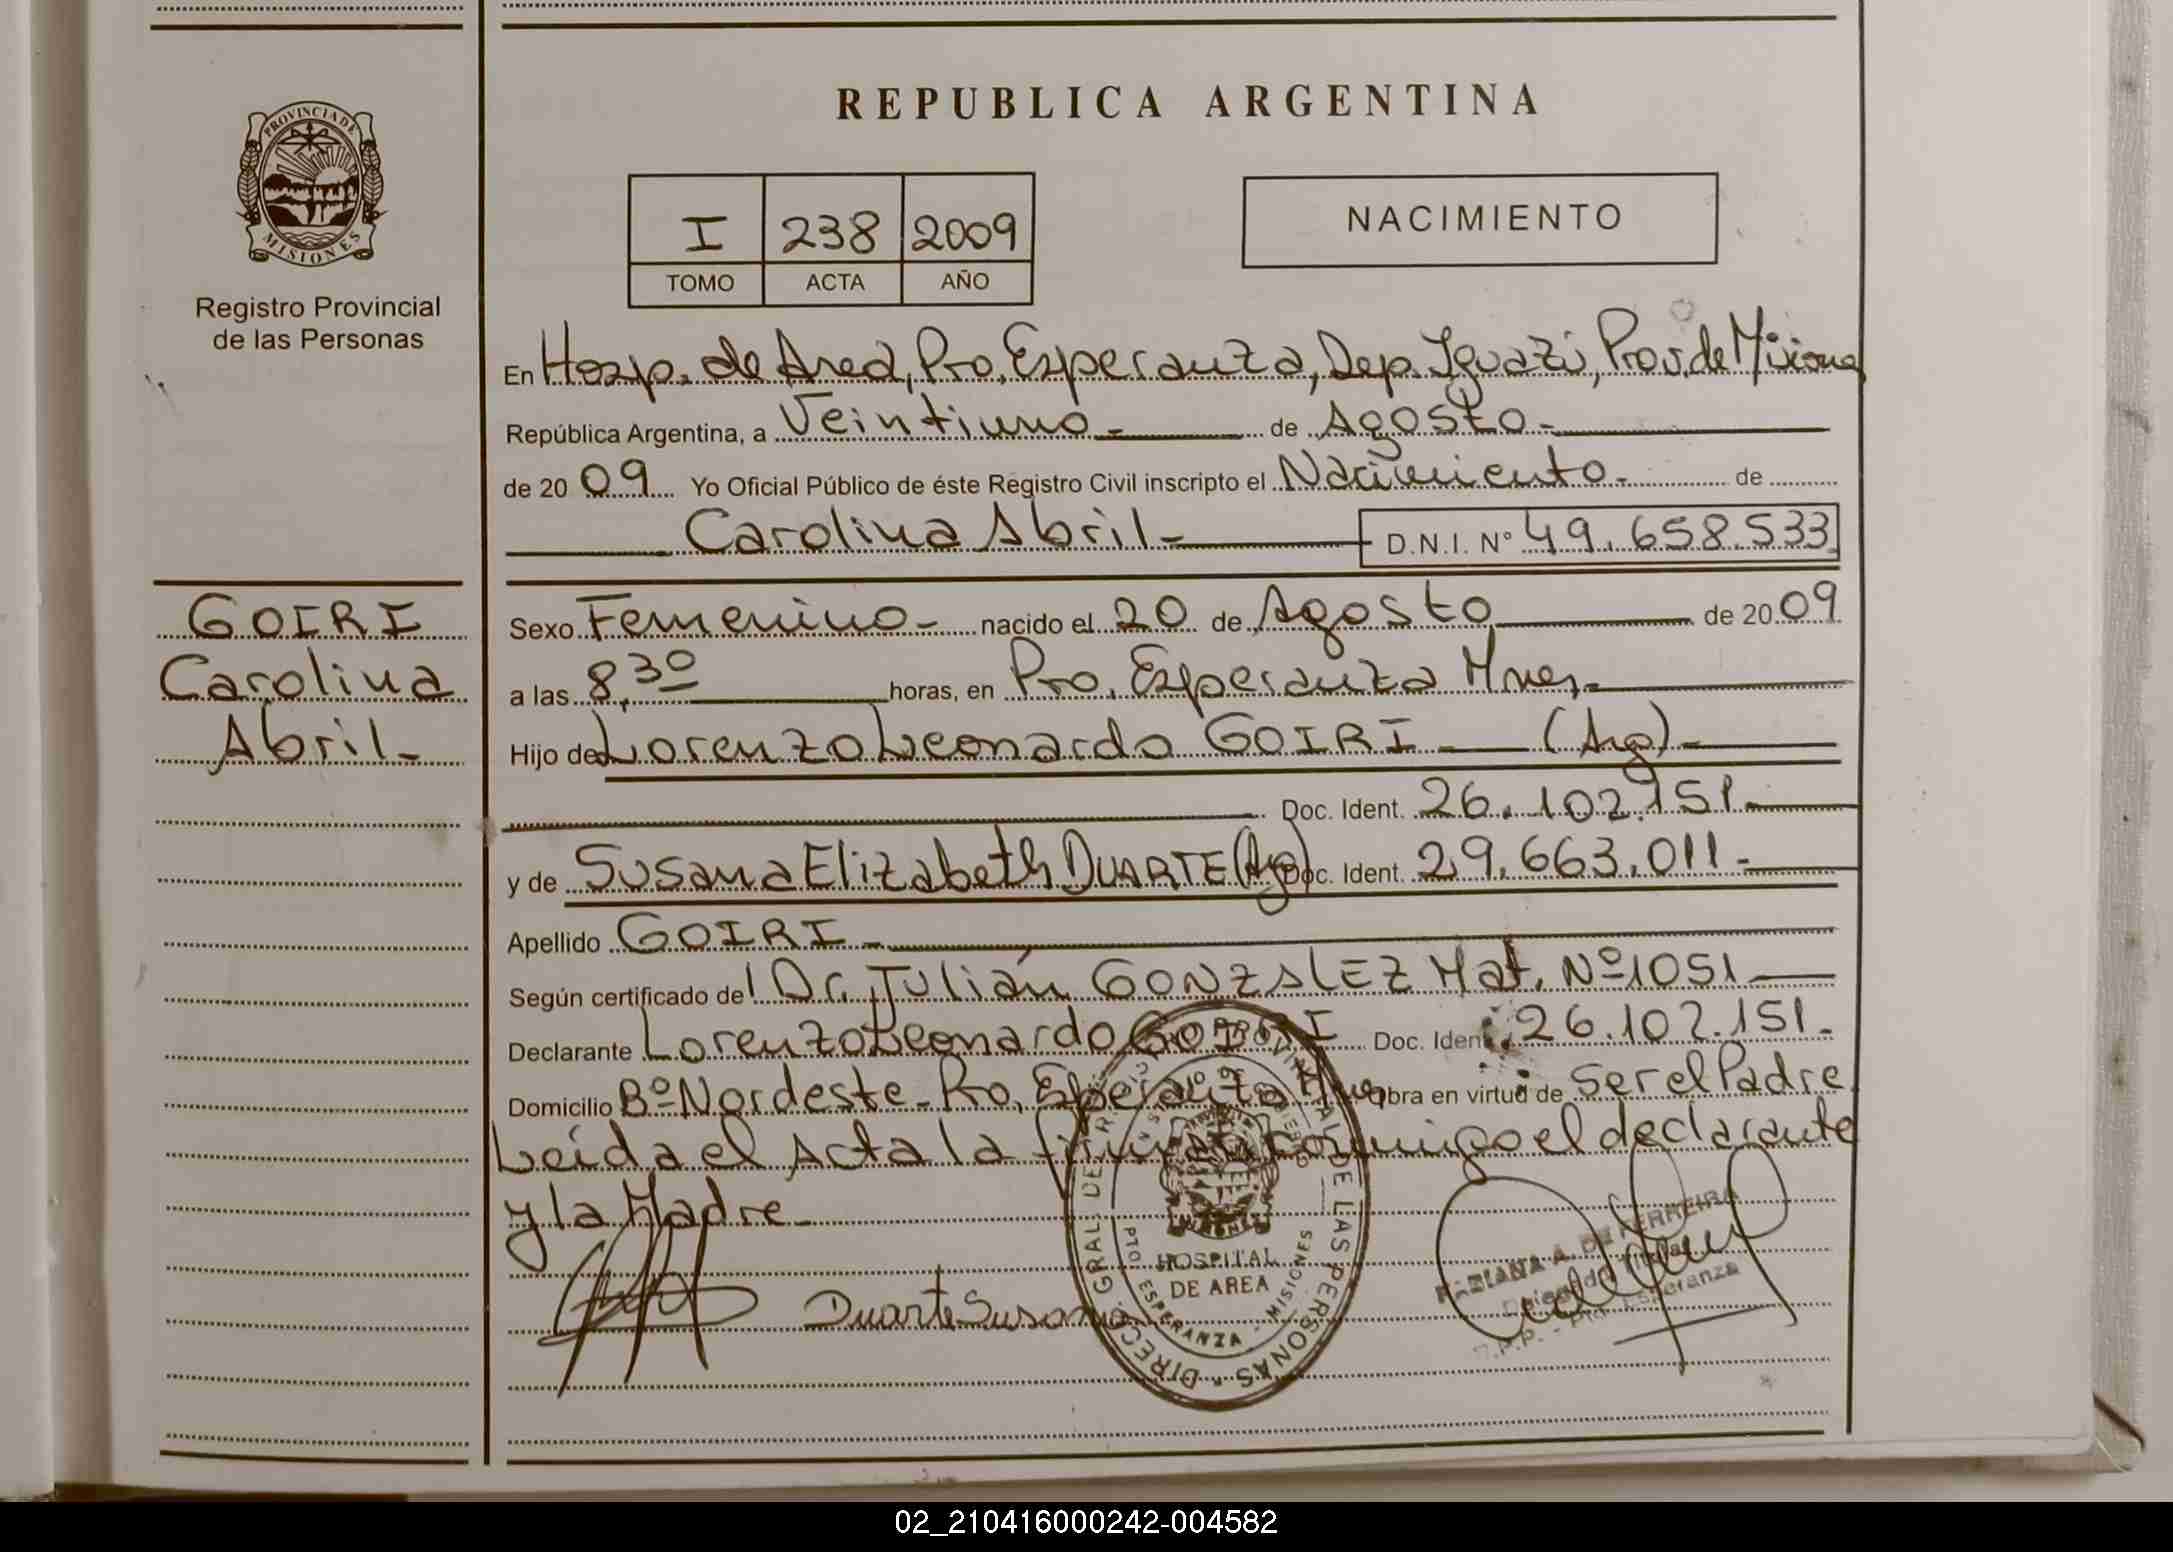 REPUBLICA ARGENTINA
PROVINCIA DE
MISIONES
Registro Provincial
de las Personas
I 238 2009
TOMO ACTA AÑO
NACIMIENTO
En Hosp. de Area, Pto. Esperanza, Dep. Iguazú, Prov. de Misiones
República Argentina, a Veintiuno - de Agosto -
de 20 09 Yo Oficial Público de éste Registro Civil inscripto el Nacimiento - de
Carolina Abril - D.N.I. N° 49.658.533
GOIRI
Carolina
Abril -
Sexo Femenino - nacido el 20 de Agosto de 20 09
a las 8,30 horas, en Pto. Esperanza Mnes. -
Hijo de Lorenzo Leonardo GOIRI - (Arg) -
Doc. Ident. 26.102.151 -
y de Susana Elizabeth DUARTE (Arg) Doc. Ident. 29.663.011 -
Apellido GOIRI -
Según certificado del Dr. Julián GONZALEZ Mat. Nº 1051
Declarante Lorenzo Leonardo GOIRI Doc. Ident. 26.102.151 -
Domicilio Bº Nordeste - Pto. Esperanza Mnes Obra en virtud de Ser el Padre
Leída el Acta la firman conmigo el declarante
y la Madre -
Duarte Susana
DIREC. GRAL. DE REGISTRO PROVINCIAL DE LAS PERSONAS
MISIONES
HOSPITAL
DE AREA
PTO ESPERANZA - MISIONES
FABIANA A. DE FERREIRA
R.P.P. - Pto. Esperanza
02_210416000242-004582